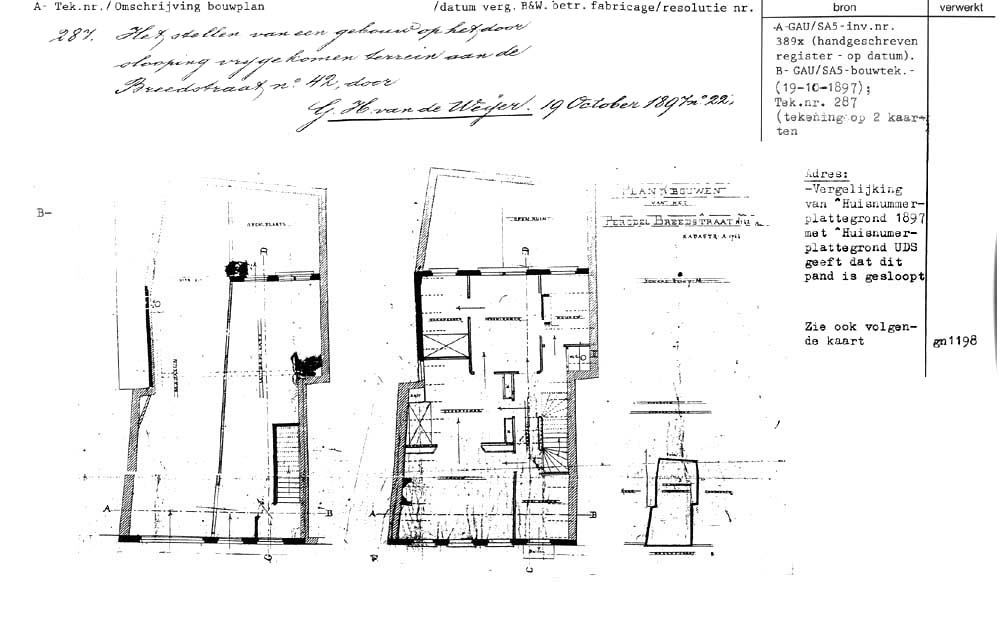 A- Tek.nr./Omschrijving bouwplan /datum verg. B&W. betr. fabricage/resolutie nr. bron verwerkt
287. Het stellen van een gebouw op het, door
slooping vrijgekomen terrein aan de
Breedstraat, no. 42, door
G. H. van de Weijer. 19 October 1897 no. 22.
-A-GAU/SA5-inv.nr.
389x (handgeschreven
register - op datum).
B- GAU/SA5-bouwtek.-
(19-10-1897);
Tek.nr. 287
(tekening op 2 kaar-
ten
Adres:
-Vergelijking
van "Huisnummer-
plattegrond 1897
met "Huisnumer-
plattegrond UDS
geeft dat dit
pand is gesloopt
Zie ook volgen-
de kaart
gn1198
B-
PLAN T. BOUWEN
VAN HET
PERCEEL BREEDSTRAAT No 42
KADASTR. A
A
B
A
B